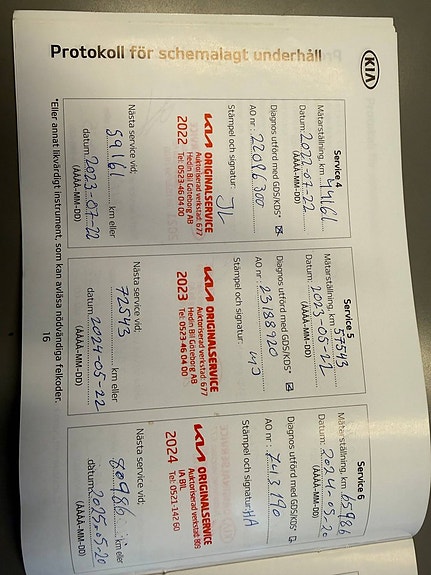 Protokoll för schemalagt underhåll
KIA
Service 4
Mätarställning, km 44161
Datum: 2022-07-22
(ÅÅÅÅ-MM-DD)
Diagnos utförd med GDS/KDS*
AO nr: 22096300
Stämpel och signatur: JL
KIA ORIGINALSERVICE
Auktoriserad verkstad: 677
Hedin Bil Göteborg AB
2022 Tel: 0523-46 04 00
Nästa service vid:
59161 km eller
datum: 2023-07-22
(ÅÅÅÅ-MM-DD)
Service 5
Mätarställning, km 57543
Datum: 2023-05-22
(ÅÅÅÅ-MM-DD)
Diagnos utförd med GDS/KDS*
AO nr: 23188920
Stämpel och signatur:
KIA ORIGINALSERVICE
Auktoriserad verkstad: 677
Hedin Bil Göteborg AB
2023 Tel: 0523-46 04 00
Nästa service vid:
72543 km eller
datum: 2024-05-22
(ÅÅÅÅ-MM-DD)
Service 6
Mätarställning, km 65986
Datum: 2024-05-20
(ÅÅÅÅ-MM-DD)
Diagnos utförd med GDS/KDS*
AO nr: 743190
Stämpel och signatur: HA
KIA ORIGINALSERVICE
Auktoriserad verkstad: 989
IA BIL
2024 Tel: 0521-142 60
Nästa service vid:
80986 km eller
datum: 2025-05-20
(ÅÅÅÅ-MM-DD)
*Eller annat likvärdigt instrument, som kan avläsa nödvändiga felkoder.
16